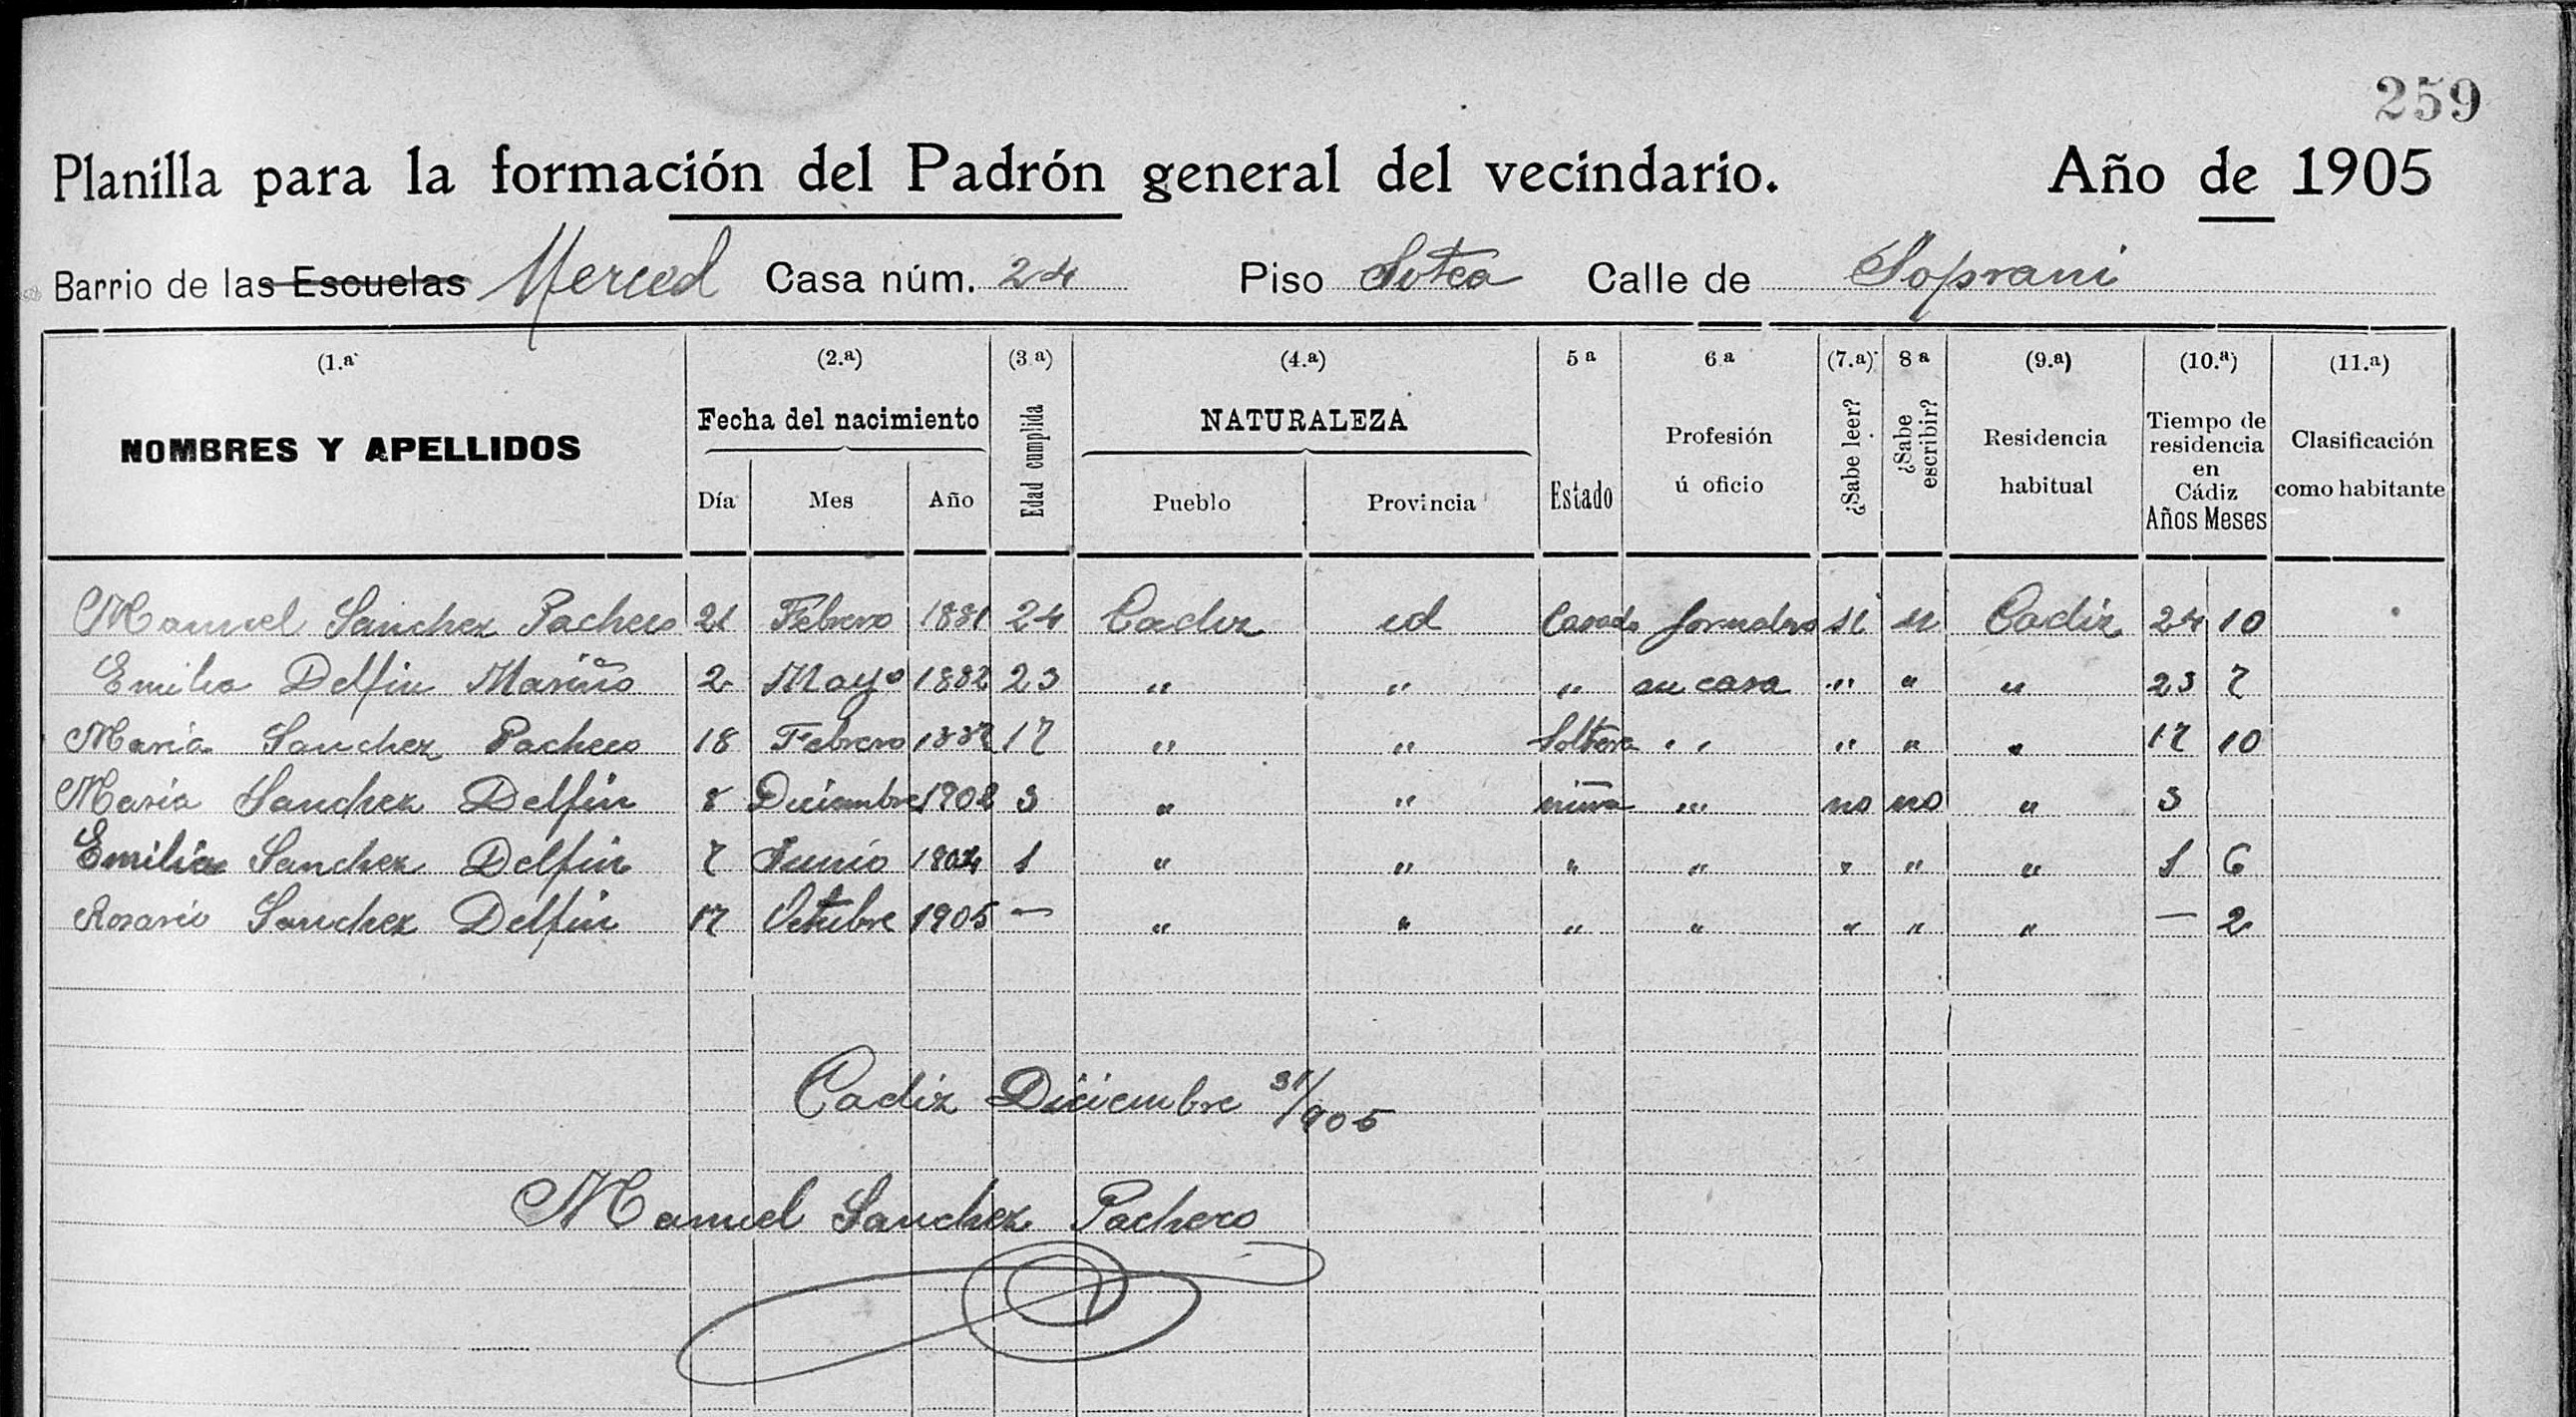 259
Planilla para la formación del Padrón general del vecindario. Año de 1905
Barrio de las Escuelas Merced Casa núm. 24 Piso Sotea Calle de Soprani
(1.a (2.a) (3 a) (4.a) 5 a 6 a (7.a) 8 a (9.a) (10.a) (11.a)
NOMBRES Y APELLIDOS Fecha del nacimiento Edad cumplida NATURALEZA Estado Profesión ú oficio ¿Sabe leer? ¿Sabe escribir? Residencia habitual Tiempo de residencia en Cádiz Clasificación como habitante
Día Mes Año Pueblo Provincia Años Meses
Manuel Sanchez Pacheco 21 Febrero 1881 24 Cadiz id Casado Jornalero si si Cadiz 24 10
Emilia Delfin Mariño 2 Mayo 1882 23 " " " su casa " " " 23 7
Maria Sanchez Pacheco 18 Febrero 17 " " Soltera " " " " 17 10
Maria Sanchez Delfin 8 Diciembre 1902 3 " " niña " no no " 3
Emilia Sanchez Delfin 7 Junio 1904 1 " " " " " " " 1 6
Rosario Sanchez Delfin 17 Octubre 1905 — " " " " " " " — 2
Cadiz Diciembre 31/905
Manuel Sanchez Pacheco